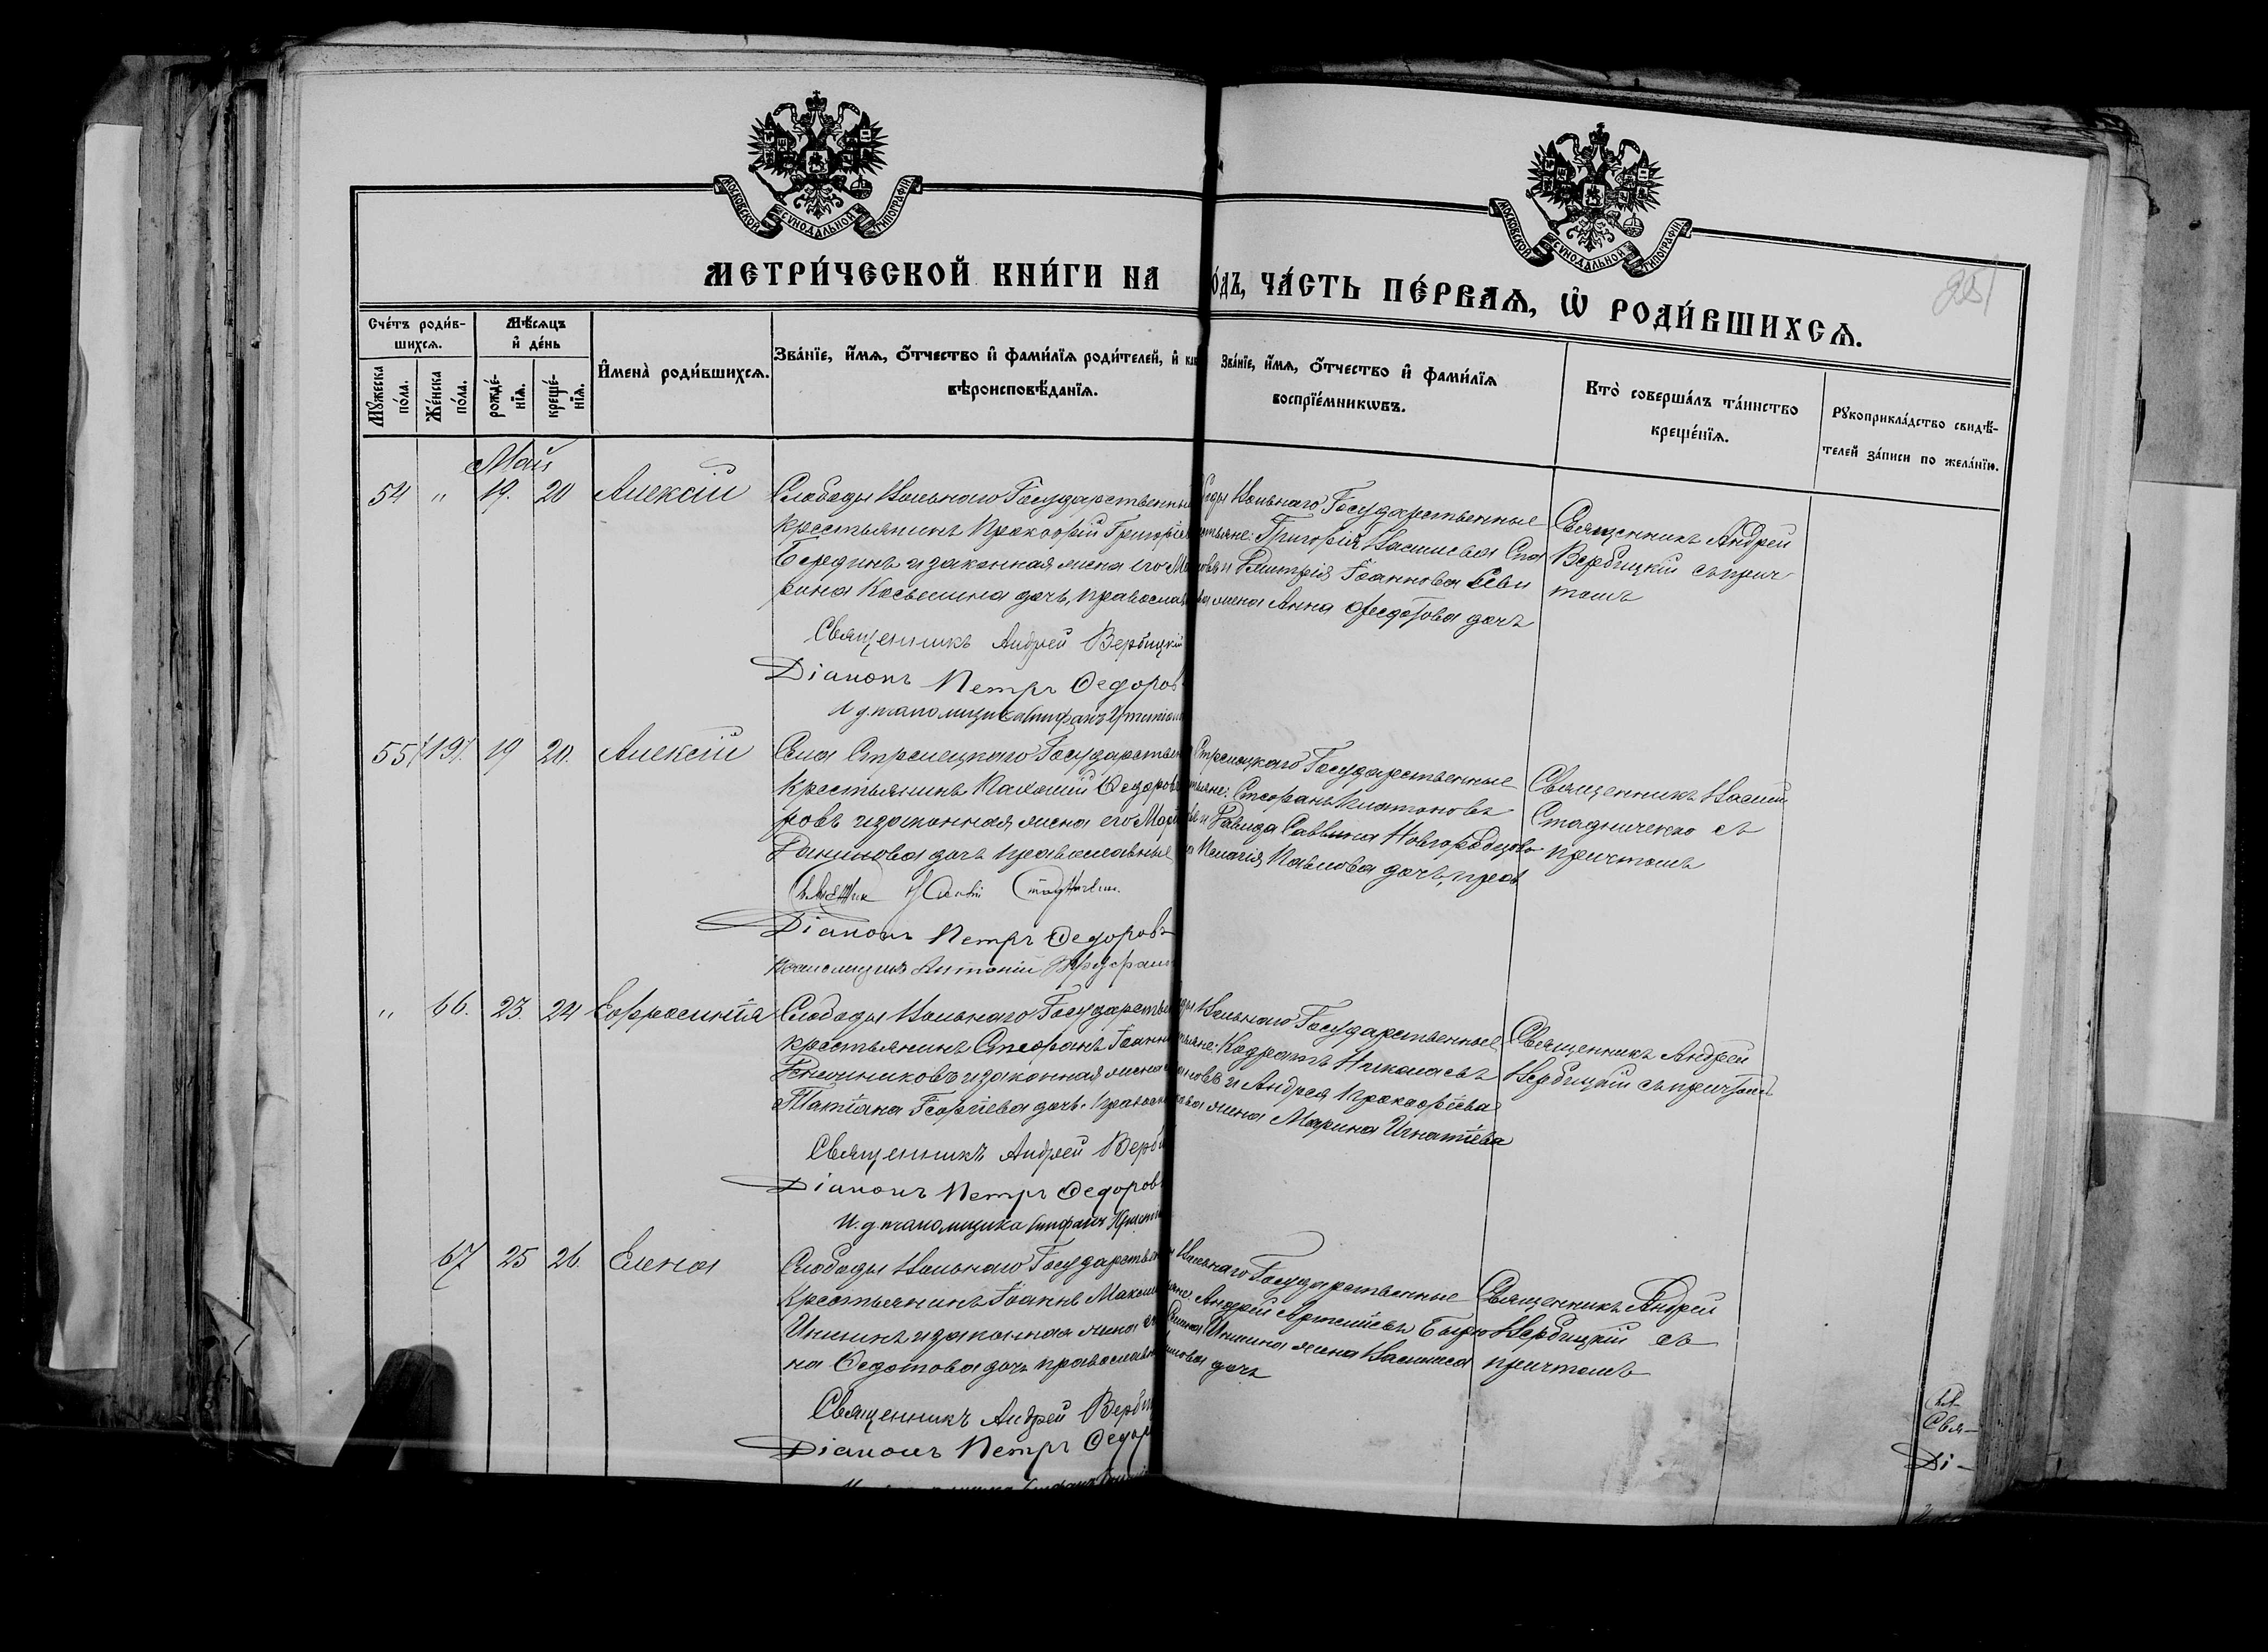 МОСКОВСКОЙ СѴНОДАЛЬНОЙ ТИПОГРАФІИ
МОСКОВСКОЙ СѴНОДАЛЬНОЙ ТИПОГРАФІИ
МЕТРИ́ЧЕСКОЙ КНИ́ГИ НА
О́ДЪ, ЧА́СТЬ ПЕ́РВАѦ, Ѿ РОДИ́ВШИХСѦ.
251
Сче́тъ роди́в-
шихсѧ.
Мꙋ́жеска по́ла.
Же́нска по́ла.
Мѣ́сѧцъ
и҆ де́нь
рожде́-нїѧ.
креще́-нїѧ.
И҆мена̀ роди́вшихсѧ.
Зва́нїе, и҆́мѧ, ѻ҆́тчество и҆ фами́лїѧ роди́телей, и҆ как
вѣроисповѣ́данїѧ.
Зва́нїе, и҆́мѧ, ѻ҆́тчество и҆ фами́лїѧ
воспрїе́мникѡвъ.
Кто̀ соверша́лъ та́инство
креще́нїѧ.
Рꙋкоприкла́дство свидѣ́-
телей за́писи по жела́нїю.
Май
54 " 19. 20 Алексій
Слободы Вольнаго Государственны
крестьянинъ Прокофій Григорьев
Берединъ и законная жена его Ма
рина Косьмина дочь, правосла
Священникъ Андрей Вербицкій
Діаконъ Петръ Федоров
И. д. псаломщика
ды Вольнаго Государственные
стьяне: Григорія Васильева
и Димитрія Іоаннова
жена Анна Федотова дочь
Священникъ Андрей
Вербицкій съ прич-
томъ
55 19 20. Алексій
Села Стрелецкаго Государствен
крестьянинъ Пахомій Федоров
ровъ и законная жена его Мар
Данилова дочь православные
Діаконъ Петръ Федоровъ
Псаломщикъ Антоній
Стрелецкаго Государственные
тьяне: Стефанъ Платоновъ
и Давида Саввина Новгородцова
Пелагія Павлова дочь, прав
Священникъ Василій
съ
причтомъ
" 66. 23. 24 Евфросинія
Слободы Вольнаго Государстве
крестьянинъ Стефанъ Іоанн
и законная жена
Татіана Георгіева дочь. Правосл
Священникъ Андрей Верби
Діаконъ Петръ Федоров
И. д. псаломщика
ды Вольнаго Государственные
тьяне: Кодратъ Николаевъ
новъ и Андрея Прокофьева
ва жена Марина Игнатіева
Священникъ Андрей
Вербицкій съ причтомъ
67 25 26. Елена
Слободы Вольнаго Государстве
крестьянинъ Іоаннъ Макси
и законная жена
на Федотова дочь православн
Священникъ Андрей Верби
Діаконъ Петръ Федор
Вольнаго Государственные
яне Андрей Артемьевъ
жена Василиса
дочь
Священникъ Андрей
Вербицкій съ
причтомъ
Свя-
Ді-